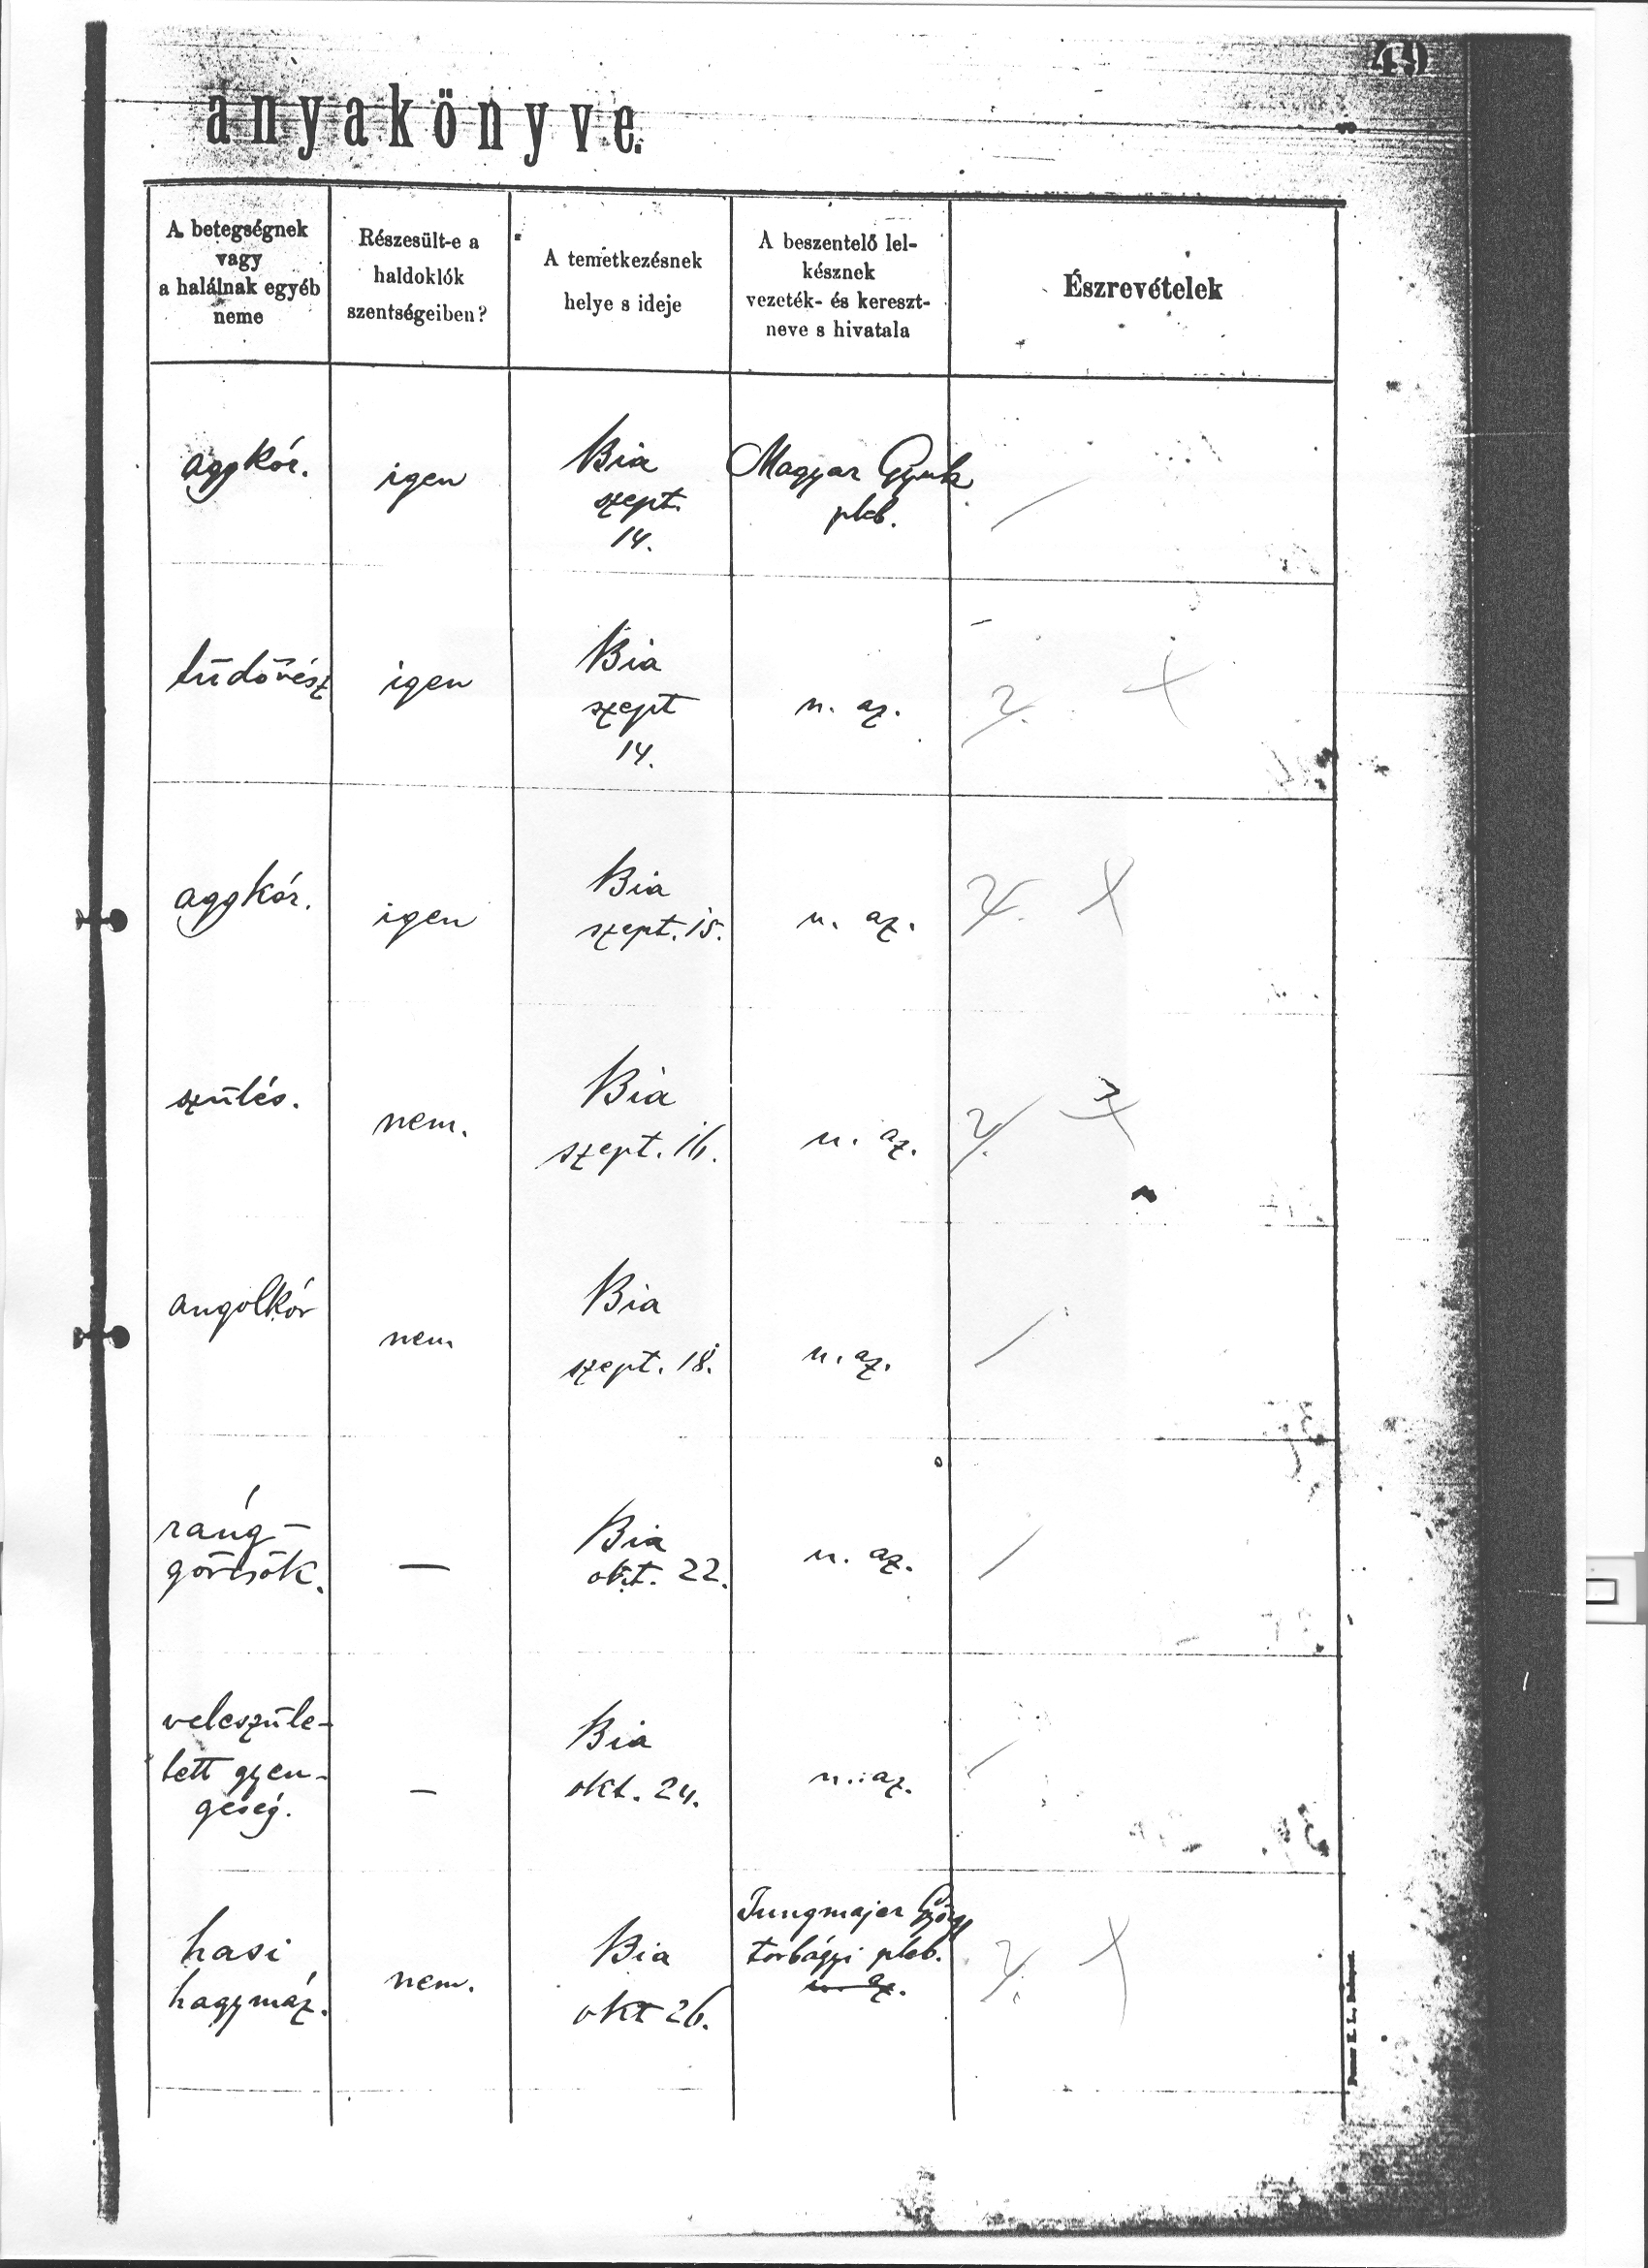 49
anyakönyve.
A betegségnek
vagy
a halálnak egyéb
neme
Részesült-e a
haldoklók
szentségeiben?
A temetkezésnek
helye s ideje
A beszentelő lel-
késznek
vezeték- és kereszt-
neve s hivatala
Észrevételek
aggkór.
igen
Bia
szept.
14.
Magyar Gyula
pleb.
tüdővész
igen
Bia
szept
14.
u. az.
2.
aggkór.
igen
Bia
szept. 15.
u. az.
2.
szülés.
nem.
Bia
szept. 16.
u. az.
2.
angolkór
nem
Bia
szept. 18.
u. az.
ráng-
görcsök.
—
Bia
okt. 22.
u. az.
veleszüle-
tett gyen-
geség.
–
Bia
okt. 24.
u. az.
hasi
hagymáz.
nem.
Bia
okt 26.
Jungmajer György
torbágyi pleb.
u. az.
2.